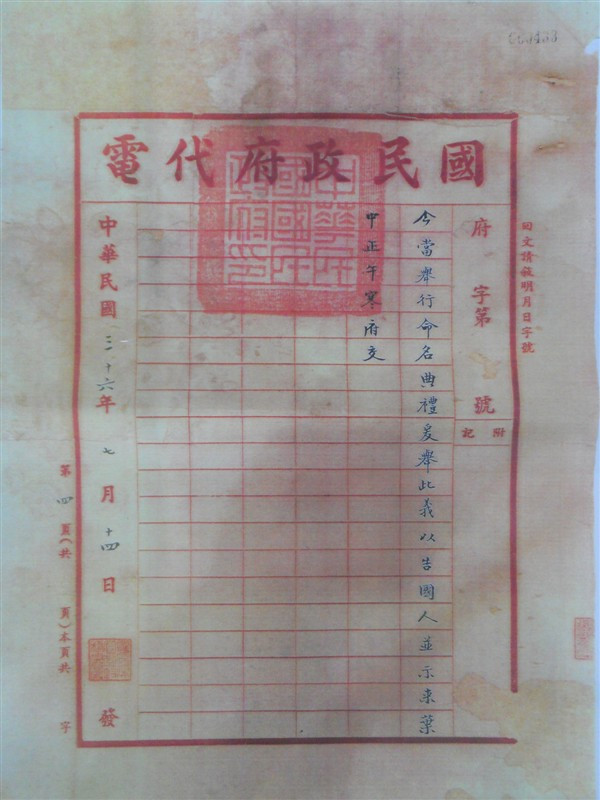 國民政府代電
回文請敍明月日字號
府 字第 號
附記
今當舉行命名典禮爰舉此義以告國人並示来葉
中正午寒府交
中華民國三十六年七月十四日發
第四頁(共 頁)本頁共 字